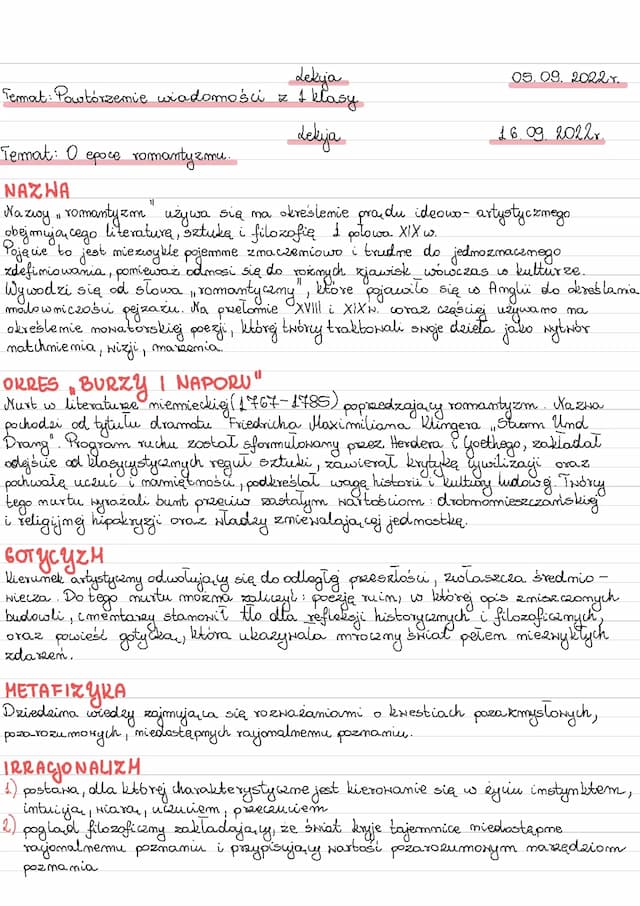 Lekcja 05.09.2022r.
Temat: Powtórzenie wiadomości z 1 klasy
Lekcja 16.09.2022r.
Temat: O epoce romantyzmu.
NAZWA
Nazwy „romantyzm" używa się na określenie prądu ideowo-artystycznego
obejmującego literaturę, sztukę i filozofię 1 połowa XIX w.
Pojęcie to jest niezwykle pojemne znaczeniowo i trudne do jednoznacznego
zdefiniowania, ponieważ odnosi się do różnych zjawisk wówczas w kulturze.
Wywodzi się od słowa „romantyczny", które pojawiło się w Anglii do określania
malowniczości pejzażu. Na przełomie XVIII i XIX w. coraz częściej używano na
określenie nowatorskiej poezji, której twórcy traktowali swoje dzieła jako wytwór
natchnienia, wizji, marzenia.
OKRES „BURZY I NAPORU"
Nurt w literaturze niemieckiej (1767-1785) poprzedzający romantyzm. Nazwa
pochodzi od tytułu dramatu Friedricha Maximiliana Klingera „Sturm Und
Drang". Program ruchu został sformułowany przez Herdera i Goethego, zakładał
odejście od klasycystycznych reguł sztuki, zawierał krytykę cywilizacji oraz
pochwałę uczuć i namiętności, podkreślał wagę historii i kultury ludowej. Twórcy
tego nurtu wyrażali bunt przeciw zastałym wartościom: drobnomieszczańskiej
i religijnej hipokryzji oraz władzy zniewalającej jednostkę.
GOTYCYZM
Kierunek artystyczny odwołujący się do odległej przeszłości, zwłaszcza średnio-
wiecza. Do tego nurtu można zaliczyć: poezję ruin, w której opis zniszczonych
budowli, cmentarzy stanowił tło dla refleksji historycznych i filozoficznych,
oraz powieść gotycką, która ukazywała mroczny świat pełen niezwykłych
zdarzeń.
METAFIZYKA
Dziedzina wiedzy zajmująca się rozważaniami o kwestiach pozazmysłowych,
pozarozumowych, niedostępnych racjonalnemu poznaniu.
IRRACJONALIZM
1) postawa, dla której charakterystyczne jest kierowanie się w życiu instynktem,
intuicją, wiarą, uczuciem, przeczuciem
2) pogląd filozoficzny zakładający, że świat kryje tajemnice niedostępne
racjonalnemu poznaniu i przypisujący wartości pozarozumowym narzędziom
poznania